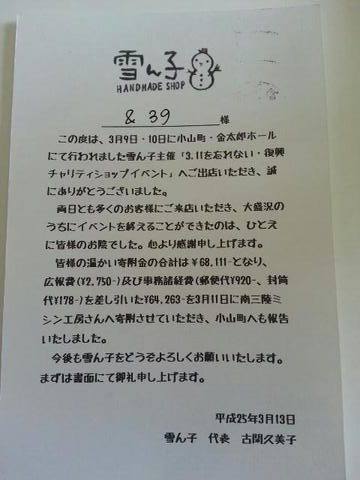 雪ん子
HANDMADE SHOP
& 39 様
この度は、3月9日・10日に小山町・金太郎ホール
にて行われました雪ん子主催「3.11を忘れない・復興
チャリティショップイベント」へご出店いただき、誠
にありがとうございました。
両日とも多くのお客様にご来店いただき、大盛況の
うちにイベントを終えることができたのは、ひとえ
に皆様のお陰でした。心より感謝申し上げます。
皆様の温かい寄附金の合計は¥68,111-となり、
広報費(¥2,750-)及び事務諸経費(郵便代¥920-、封筒
代¥178-)を差し引いた¥64,263-を3月11日に南三陸ミ
シン工房さんへ寄附させていただき、小山町へも報告
いたしました。
今後も雪ん子をどうぞよろしくお願いいたします。
まずは書面にて御礼申し上げます。
平成25年3月13日
雪ん子 代表 古関久美子